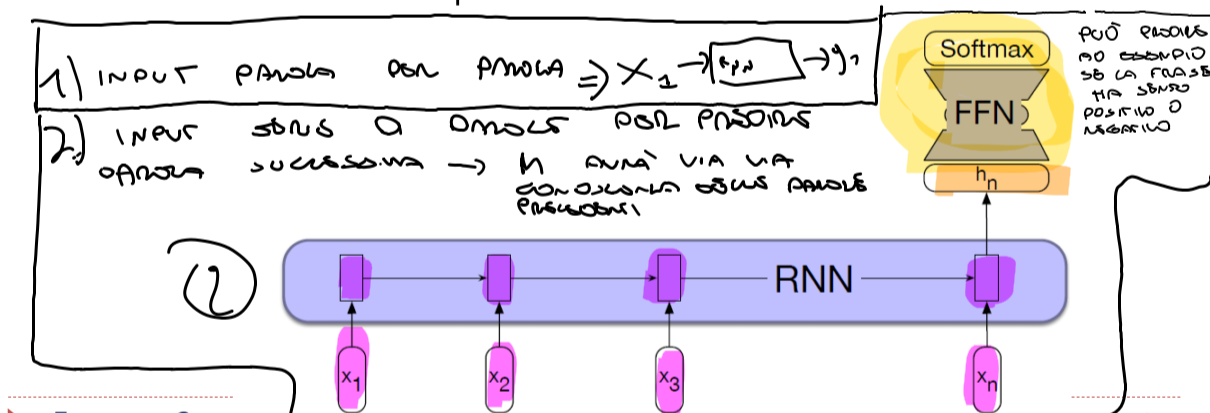 1) INPUT PAROLA PER PAROLA => X1 -> RNN -> y1
2) INPUT SERIE DI PAROLE PER PREDIRE
PAROLA SUCCESSIVA -> h AVRÀ VIA VIA
CONOSCENZA DELLE PAROLE
PRECEDENTI
Softmax
FFN
hn
PUÒ PREDIRE
AD ESEMPIO
SE LA FRASE
HA SENSO
POSITIVO O
NEGATIVO
2
RNN
x1 x2 x3 xn